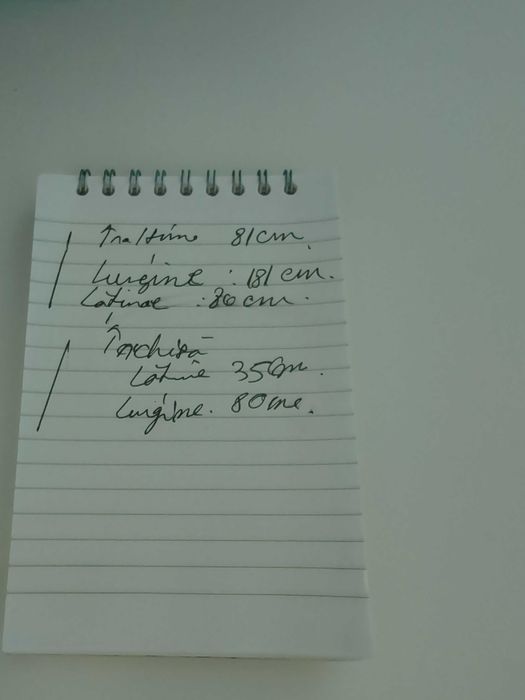 Înaltime 81 cm.
Lungime : 181 cm.
Latime : 80 cm.
Închisă
Latime 35 cm.
Lungime. 80 cm.